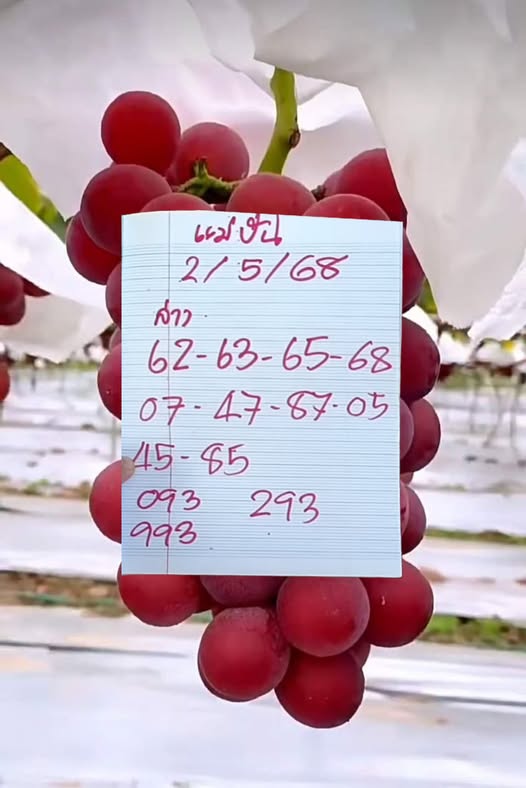 แม่ขัน
2/5/68
ลาว
62-63-65-68
07-47-87-05
45-85
093 293
993